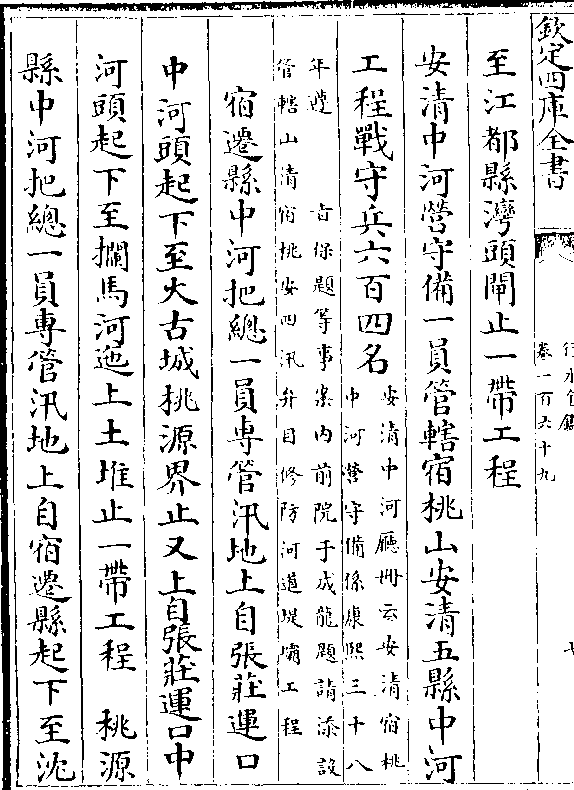 欽定四庫全書
行水金鑑
卷一百六十九
至江都縣灣頭閘止一帶工程
安清中河營守備一員管轄宿桃山安清五縣中河
工程戰守兵六百四名
安清中河廳冊云安清宿桃
中河營守備係康熙三十八
年遵 旨保題等事案内前院于成龍題請添設
管轄山清宿桃安四汛弁目修防河道堤壩工程
宿遷縣中河把總一員專管汛地上自張莊運口
中河頭起下至大古城桃源界止又上自張莊運口中
河頭起下至攔馬河迤上土堆止一帶工程 桃源
縣中河把總一員專管汛地上自宿遷縣起下至沈